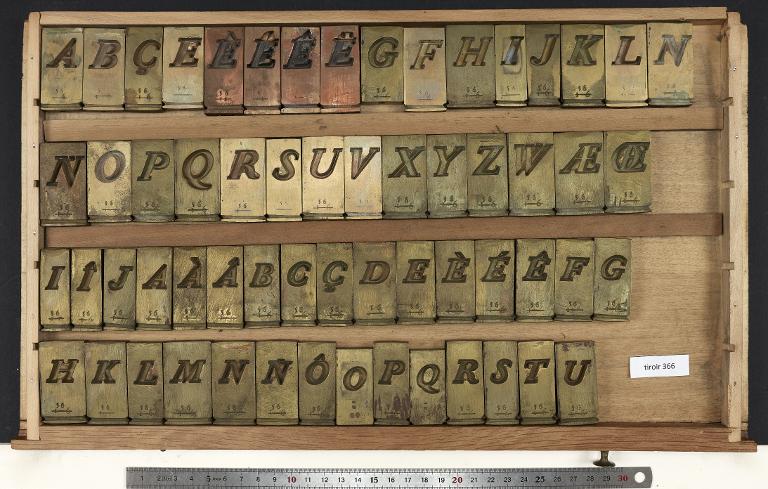 A B Ç E È É Ê Ë G F H I J K L N
N O P Q R S U V X Y Z W Æ Œ
I Î J A À Â B C Ç D E È É Ê F G
H K L M N Ñ Ô O P Q R S T U
tiroir 366
1 2 3 4 5 6 7 8 9 10 11 12 13 14 15 16 17 18 19 20 21 22 23 24 25 26 27 28 29 30